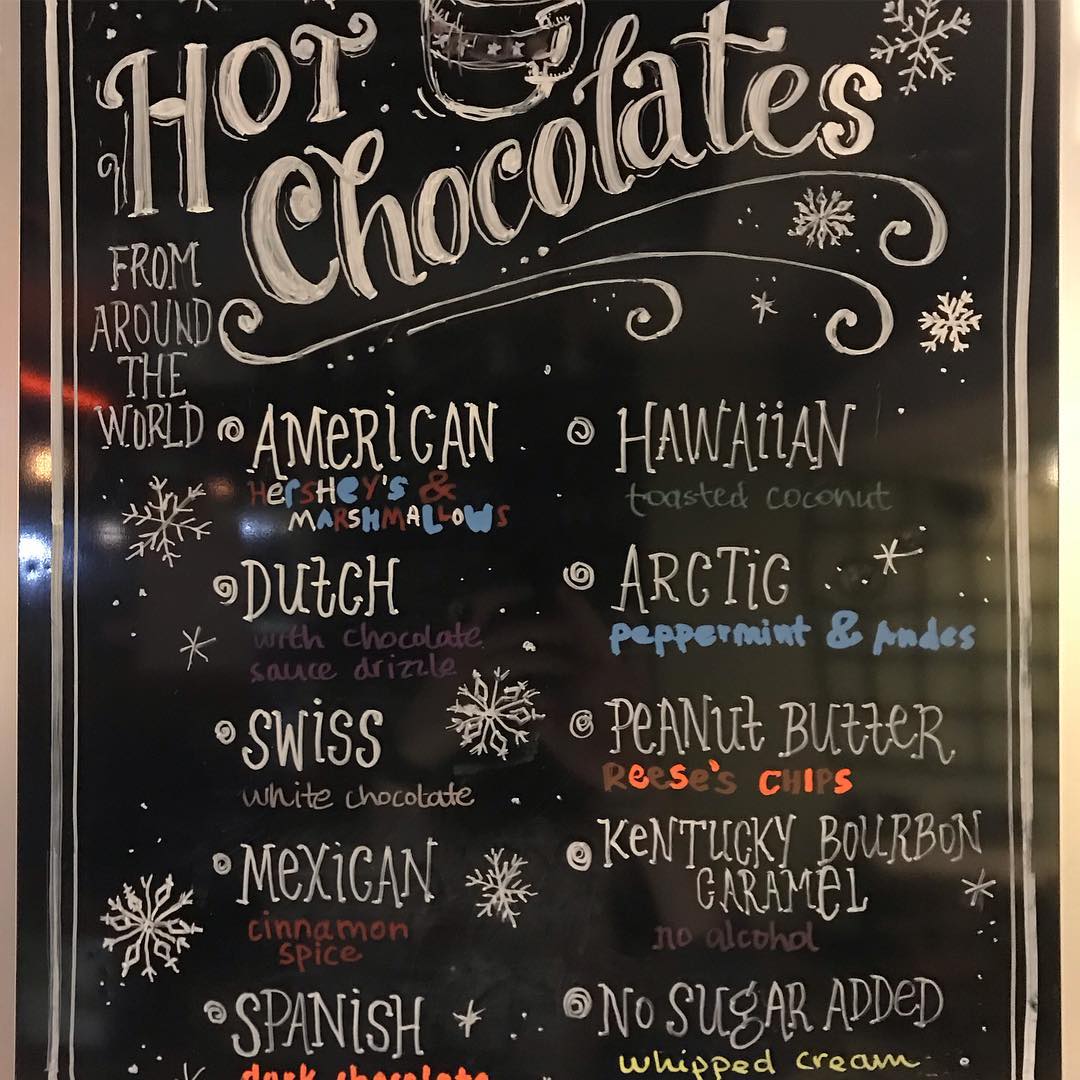 HOT
Chocolates
FROM
AROUND
THE
WORLD
AMERICAN
HERSHEY'S &
MARSHMALLOWS
DUTCH
with chocolate
sauce drizzle
SWISS
white chocolate
MEXICAN
cinnamon
spice
SPANISH
dark chocolate
HAWAIIAN
toasted coconut
ARCTIC
peppermint & Andes
PEANUT BUTTER
REESE'S CHIPS
KENTUCKY BOURBON
CARAMEL
no alcohol
NO SUGAR ADDED
whipped cream